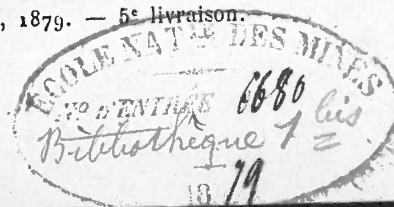 , 1879. — 5e livraison.
ECOLE NATLE DES MINES
No D'ENTRÉE 6680
Bibliothèque 1 bis
1879